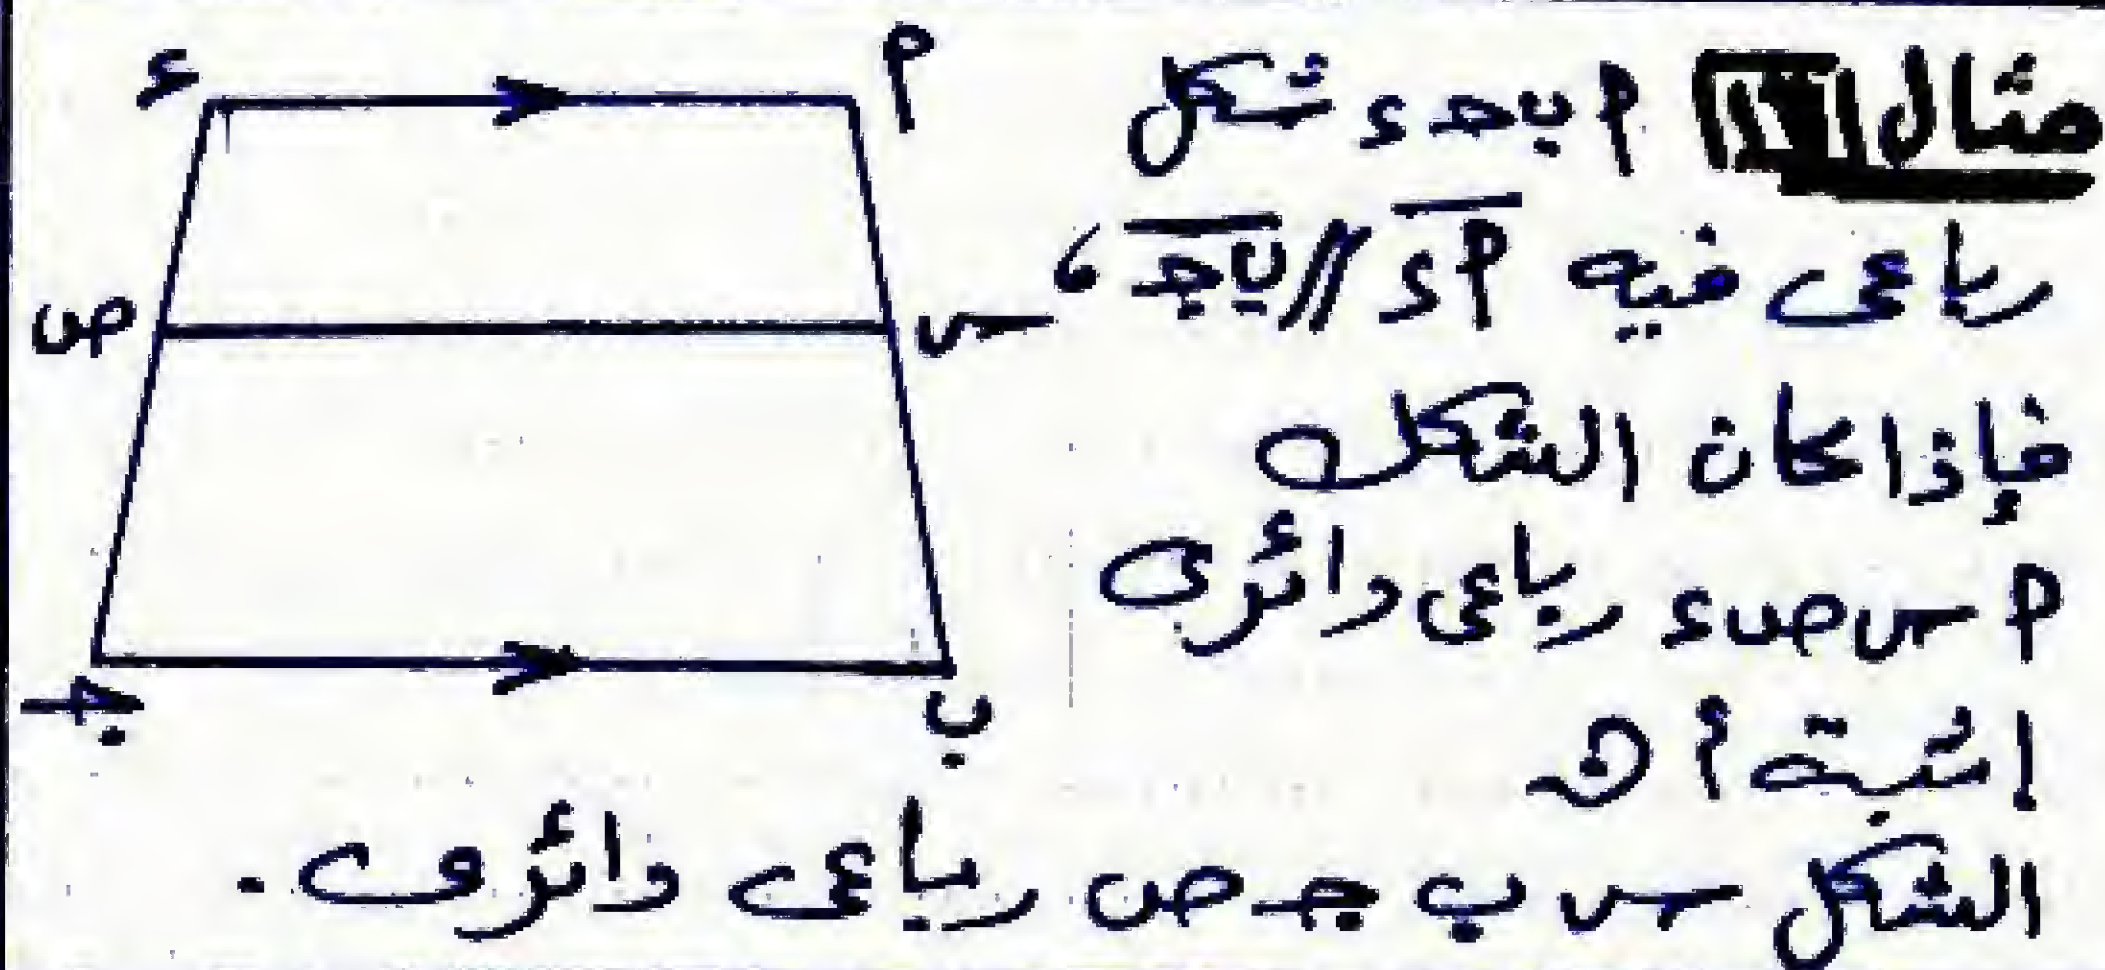 مثال أ ب جـ د شكل
رباعى فيه أد // ب جـ ،
فإذا كان الشكل
أ س ص د رباعى دائرى
اثبت أن
الشكل س ب جـ ص رباعى دائرى .
د
أ
ص
س
جـ
ب